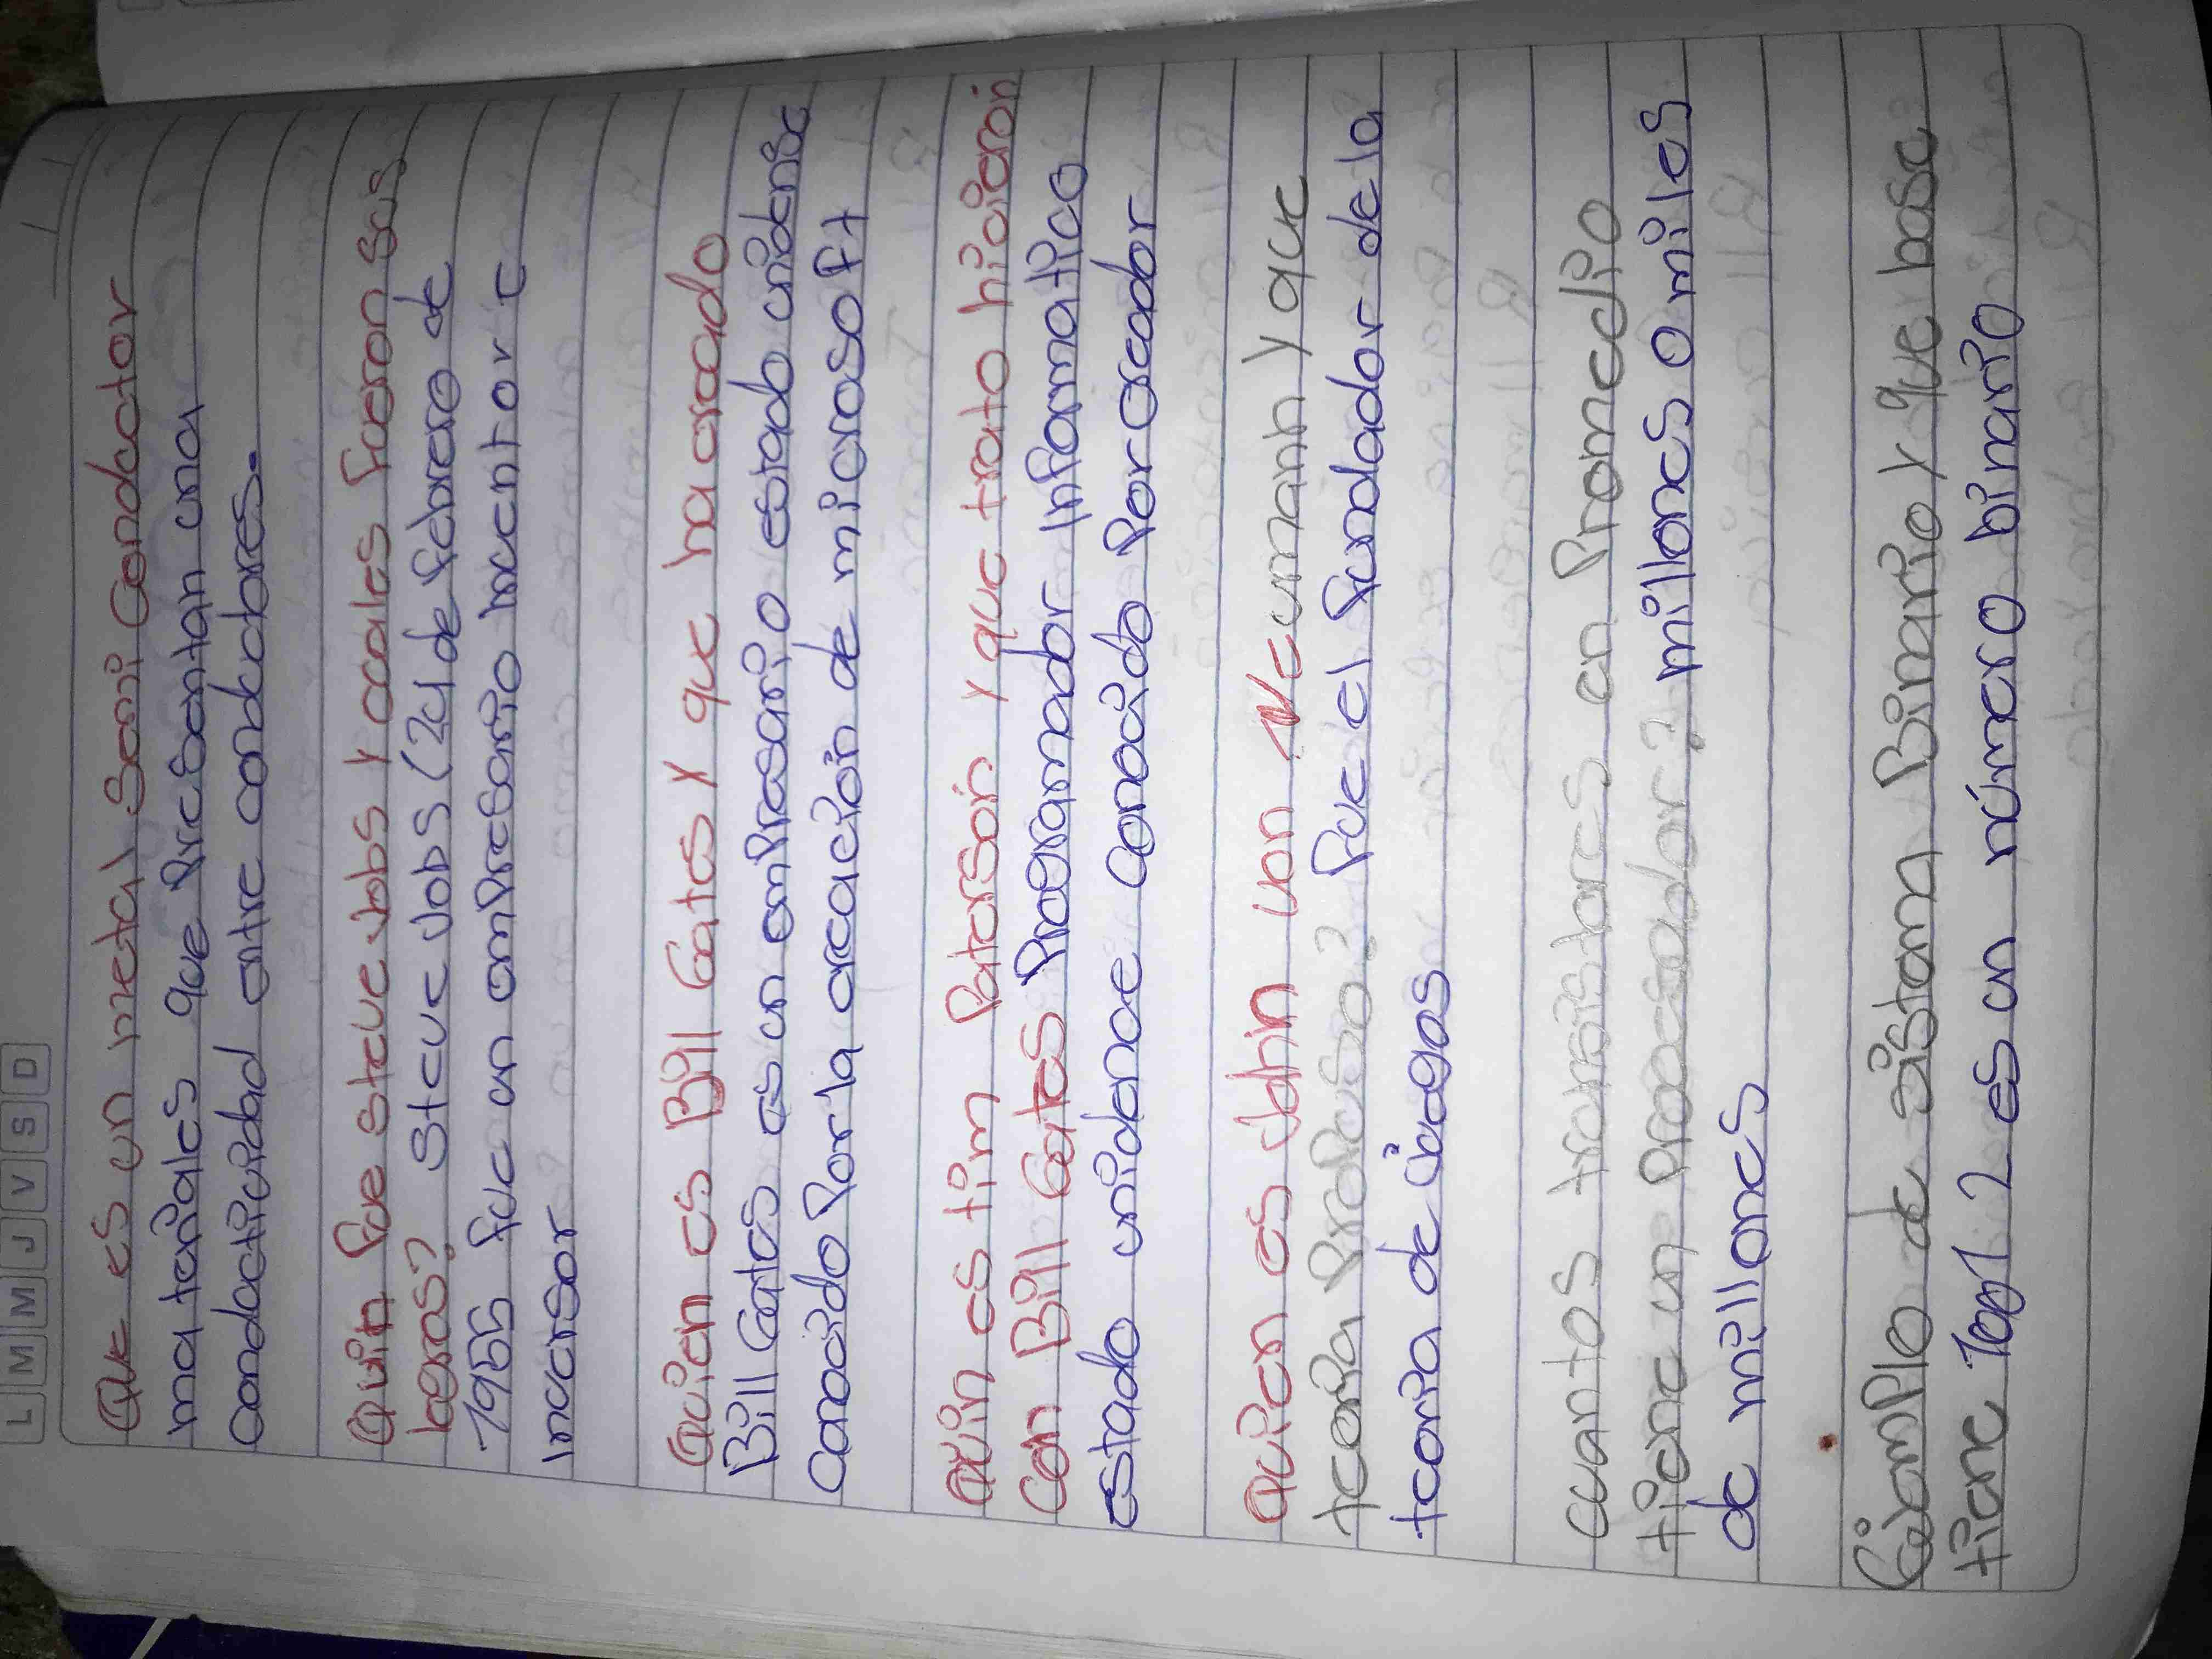 L M M J V S D
Que es un metal Semi Conductor
materiales que Presentan una
Conductividad entre conductores.
Quin fue steve Jobs y cuales fueron sus
logros? Steve Jobs (24 de febrero de
1955 fue un empresario inventor e
inversor
Quien es Bill Gates y que ha creado
Bill Gates es un empresario estado unidense
Conocido Por la creación de microsoft
Quin es tim Paterson y que trato hicieron
Con Bill Gates Programador informatico
estado unidence conocido Por creador
Quien es John von Neumann y que
teoria Propuso? Fue el fundador de la
teoria de juegos
cuantos transistores en Promedio
tiene un Procesador? millones o miles
de millones
Ejemplo de sistema Binario y que base
tiene 1001 2 es un número binario